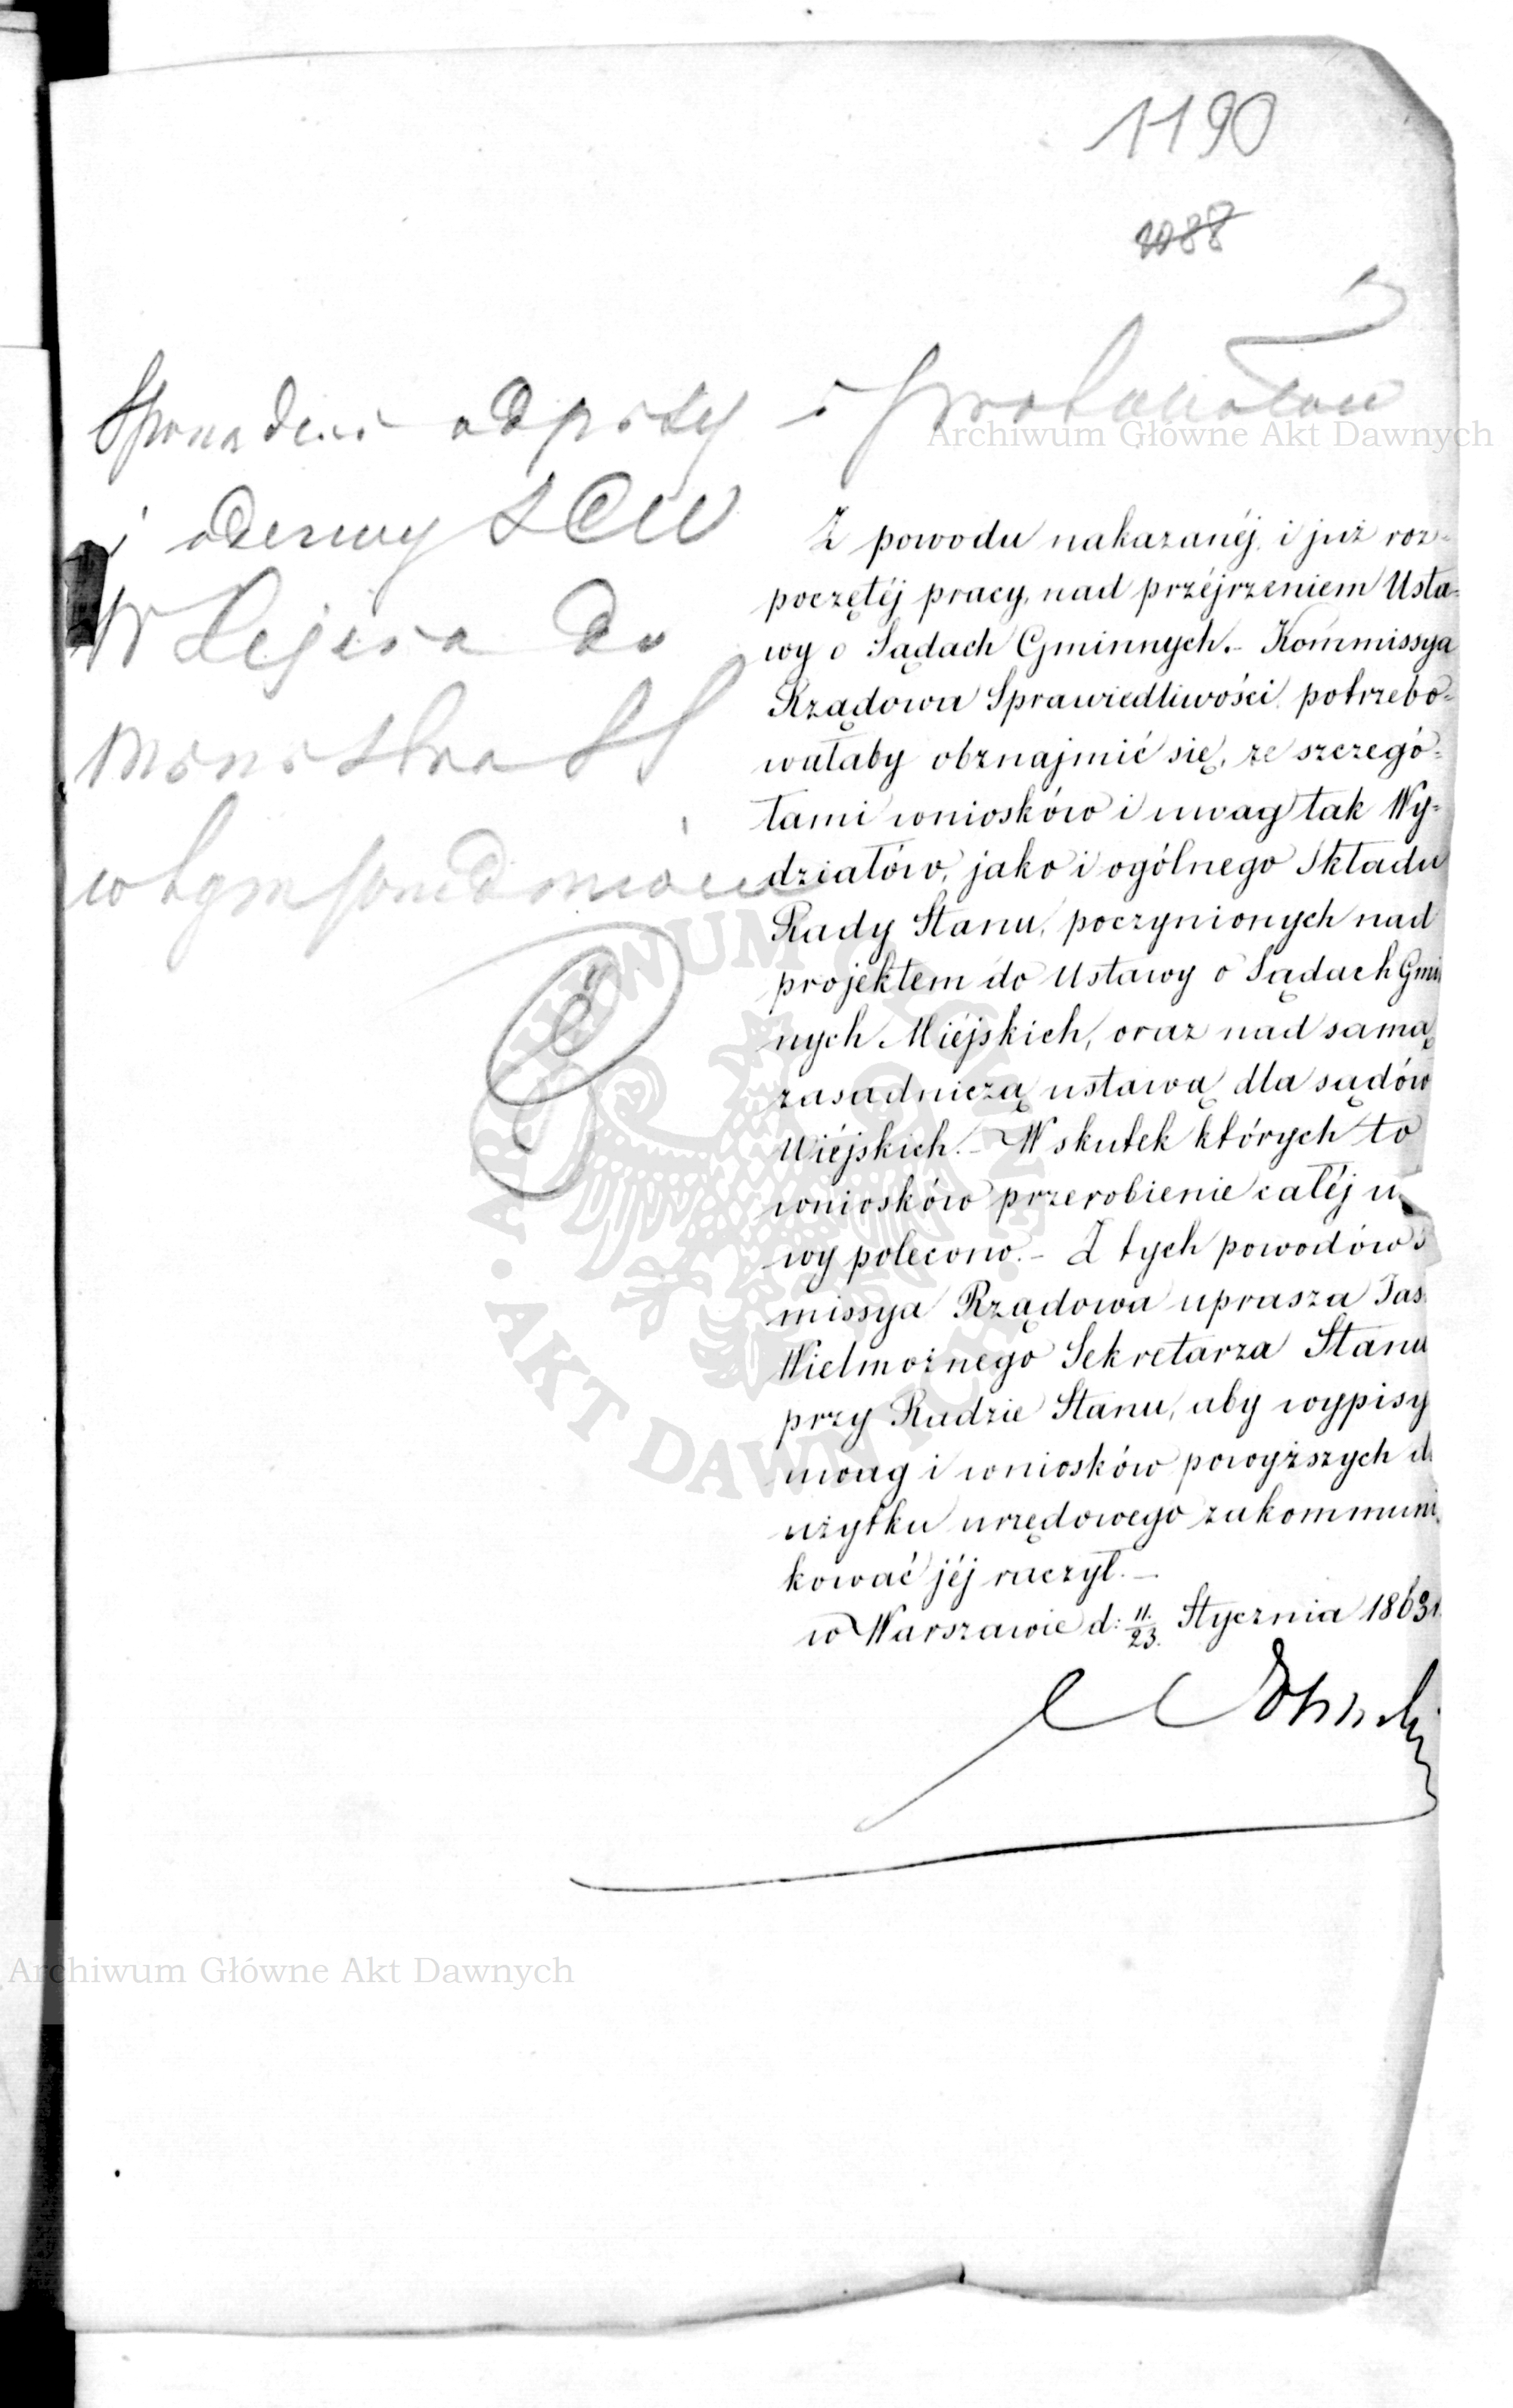 1190
1088
odpisy i protokułów
i odezwy SCW
do
Ministra
w tym przedmiocie
Archiwum Główne Akt Dawnych
Z powodu nakazanéj i już roz-
poczętéj pracy, nad przéjrzeniem Usta-
wy o Sądach Gminnych.- Kommissya
Rządowa Sprawiedliwości potrzebo-
wałaby obznajmić się, ze szczegó-
łami wniosków i uwag tak Wy-
działów, jako i ogólnego Składu
Rady Stanu, poczynionych nad
projektem do Ustawy o Sądach Gmi
nych Miéjskich, oraz nad samą
zasadniczą ustawą dla sądów
Wiéjskich.- W skutek których to
wniosków przerobienie całéj u
wy polecono.- Z tych powodów
missya Rządowa uprasza Jas
Wielmożnego Sekretarza Stanu
przy Radzie Stanu, aby wypisy
uwag i wniosków powyższych d
użytku urzędowego zakommuni
kować jéj raczył.-
w Warszawie d: 11/23. Stycznia 1863 r
ARCHIWUM GŁÓWNE AKT DAWNYCH
Archiwum Główne Akt Dawnych